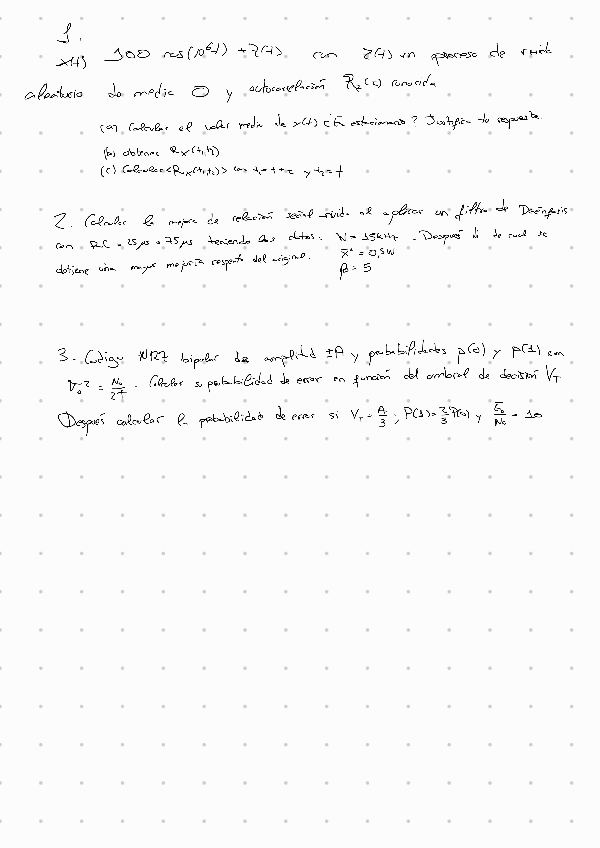 1.
x(t) 100 cos(10^6 t) + z(t) con z(t) un proceso de ruido
aleatorio de media 0 y autocorrelación R_z(τ) conocida
(a) Calcular el valor medio de x(t) ¿Es estacionario? Justifica tu respuesta.
(b) obtener R_x(t1,t2)
(c) Calcular <R_x(t1,t2)> con t1=t+τ y t2=t
2. Calcular la mejora de relación señal ruido al aplicar un filtro de Deénfasis
con RC = 25μs o 75μs teniendo los datos. W = 15kHz. Después de cual se
obtiene una mayor mejoría respecto del original. x² = 0,5W
β = 5
3. Codigo NRZ bipolar de amplitud ±A y probabilidades p(0) y p(1) con
σ_0² = N_0/2T. Calcular su probabilidad de error en función del umbral de decisión V_T
Después calcular la probabilidad de error si V_T = A/3; P(1)=2/3 P(0) y E_b/N_0 = 10